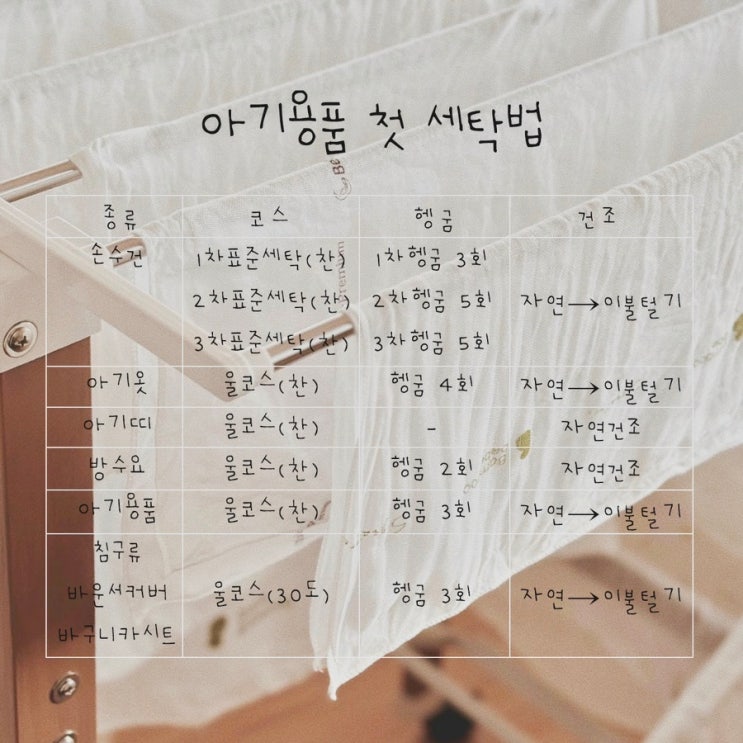 아기용품 첫 세탁법
종류 코스 헹굼 건조
손수건 1차표준세탁(찬) 1차헹굼 3회
2차표준세탁(찬) 2차헹굼 5회 자연→이불털기
3차표준세탁(찬) 3차헹굼 5회
아기옷 울코스(찬) 헹굼 4회 자연→이불털기
아기띠 울코스(찬) - 자연건조
방수요 울코스(찬) 헹굼 2회 자연건조
아기용품 울코스(찬) 헹굼 3회 자연→이불털기
침구류
바운서커버 울코스(30도) 헹굼 3회 자연→이불털기
바구니카시트